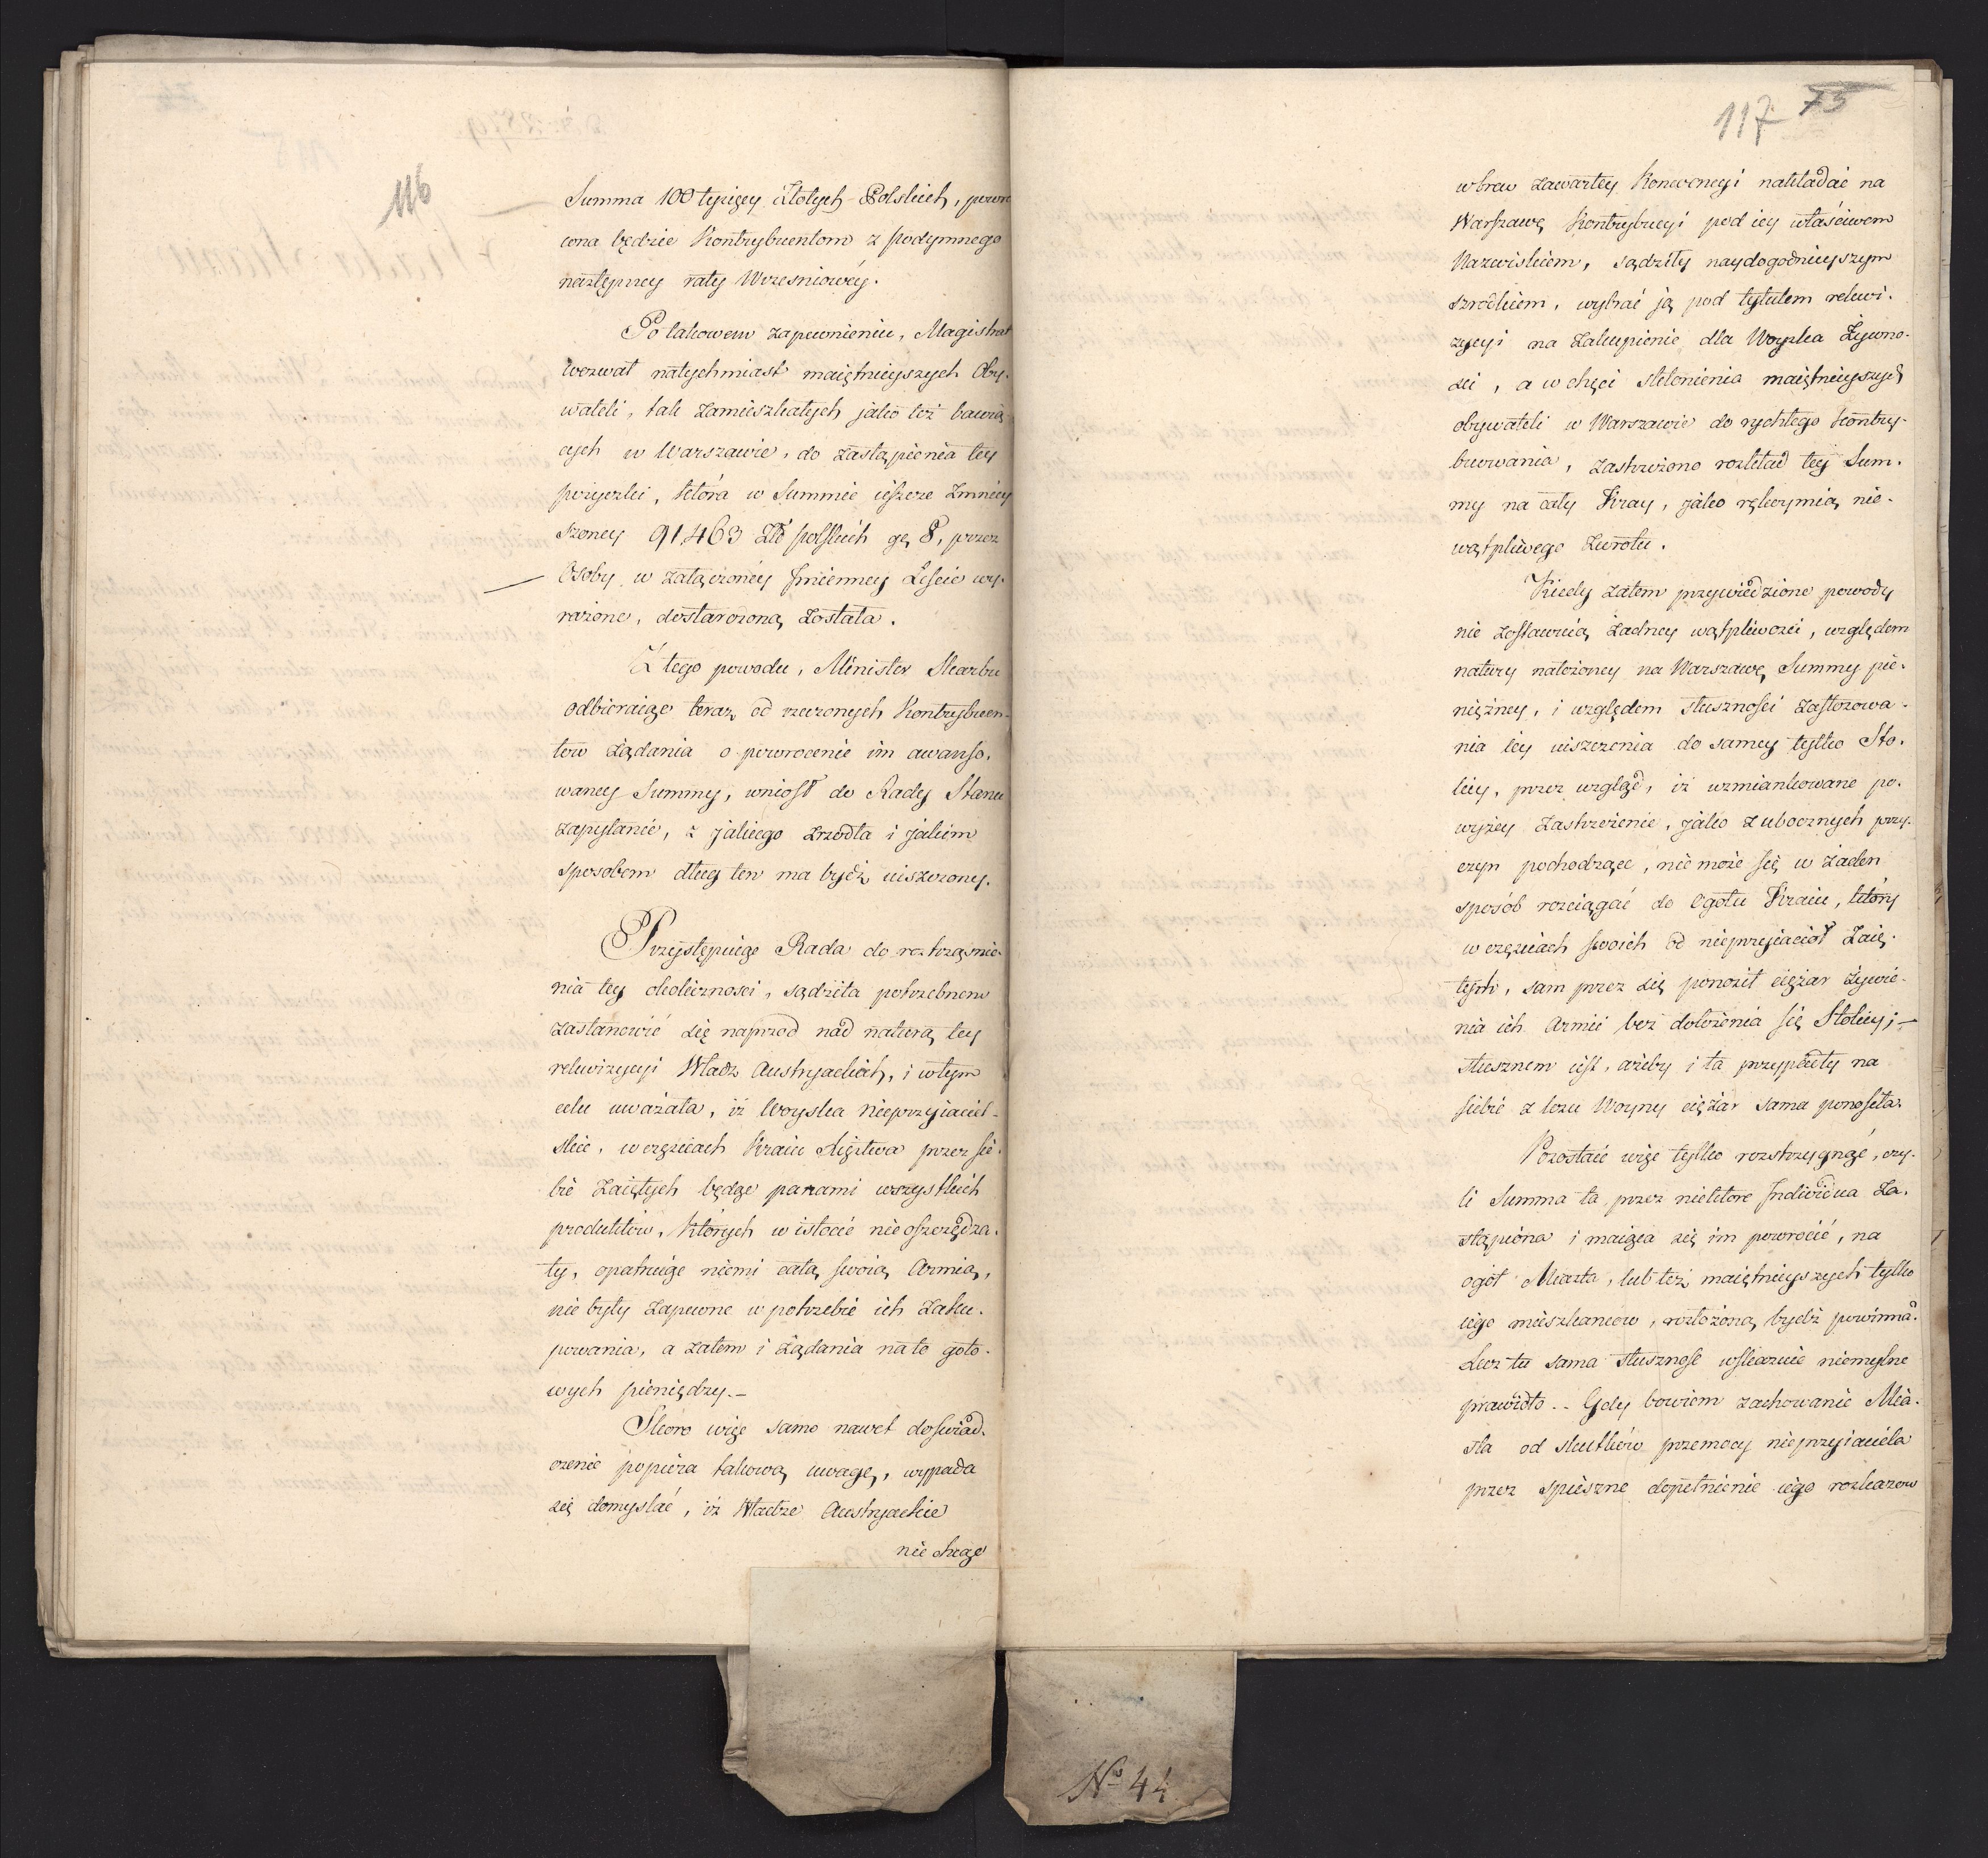 116
Summa 100 tysięcy Złotych Polskich, powró
cona będzie Kontrybuentom z podymnego
następney raty Wrzesniowéy.
Po takowem zapewnieniu, Magistrat
wezwał natychmiast maiętnieyszych Oby-
wateli, tak zamieszkałych jako też bawią
cych w Warszawie, do zastąpienia tey
pożyczki, która w Summie ieszcze zmniey
szoney 91,463 Złł polskich gr, 8, przez
Osoby w załączonéy Jmienney Liście wy-
rażone, dostarczoną została.
Z tego powodu, Minister Skarbu
odbieraiąc teraz od rzeczonych Kontrybuen-
tow żądania o powrocenie im awanso-
waney Summy, wniosł do Rady Stanu
zapytanie, z jakiego zrzodła i jakim
sposobem dług ten ma bydź uiszczony.
Przystępuiąc Rada do roztrząsnie-
nia tey okoliczności, sądziła potrzebnem
zastanowić się naprzod nad naturą tey
rekwizycyi Władz Austryackich, i w tym
celu uważała, iż Woyska nieprzyiaciel-
skie, w częściach Kraiu Xięstwa przez sie-
bie zaiętych będąc panami wszystkich
produktów, których w istocie nie oszczędza-
ły, opatruiąc niemi całą swoią Armią,
nie były zapewne w potrzebie ich zaku-
powania, a zatem i żądania na to goto-
wych pieniędzy.-
Skoro więc samo nawet doswiad-
czenie popiera takową uwagę, wypada
się domyslać, iż Władze Austryackie
nie chcąc
117 75
wbrew zawartey Konwencyi nakładać na
Warszawę Kontrybucyi pod iey właściwem
Nazwiskiem, sądziły naydogodnieyszym
szrodkiem, wybrać ją pod tytułem rekwi-
zycyi na zakupienie dla Woyska Żywno-
ści, a w chęci skłonienia maiętnieyszych
obywateli w Warszawie do rychłego kontry-
buowania, zastrzeżono rozkład tey Sum-
my na cały Kray, jako rękoymią nie-
wątpliwego zwrotu.
Kiedy zatem przywiedzione powody
nie zostawuią żadney wątpliwości, względem
natury nałożoney na Warszawę Summy pie-
niężney, i względem słuszności zastosowa-
nia iey uiszczenia do samey tylko Sto-
licy, przez wzgląd, iż wzmiankowane po-
wyżey zastrzeżenie, jako z ubocznych przy-
czyn pochodzące, nie może się w żaden
sposób rozciągać do Ogółu Kraiu, który
w częściach swoich od nieprzyiaciół zaię-
tych, sam przez się ponosił ciężar żywie-
nia ich Armii bez dołożenia się Stolicy;-
słusznem iest, ażeby i ta przypadły na
siebie z losu Woyny ciężar sama ponosiła.
Pozostaie więc tylko rozstrzygnąć, czy-
li Summa ta przez niektore Individua za-
stąpiona i maiąca się im powrócić, na
ogół Miasta, lub też maiętnieyszych tylko
iego mieszkancow, rozłożoną bydź powinna.
Lecz tu sama słusznosć wskazuie niemylne
prawidło.- Gdy bowiem zachowanie Mia-
sta od skutków przemocy nieprzyiaciela
przez spieszne dopełnienie iego rozkazow
No 44